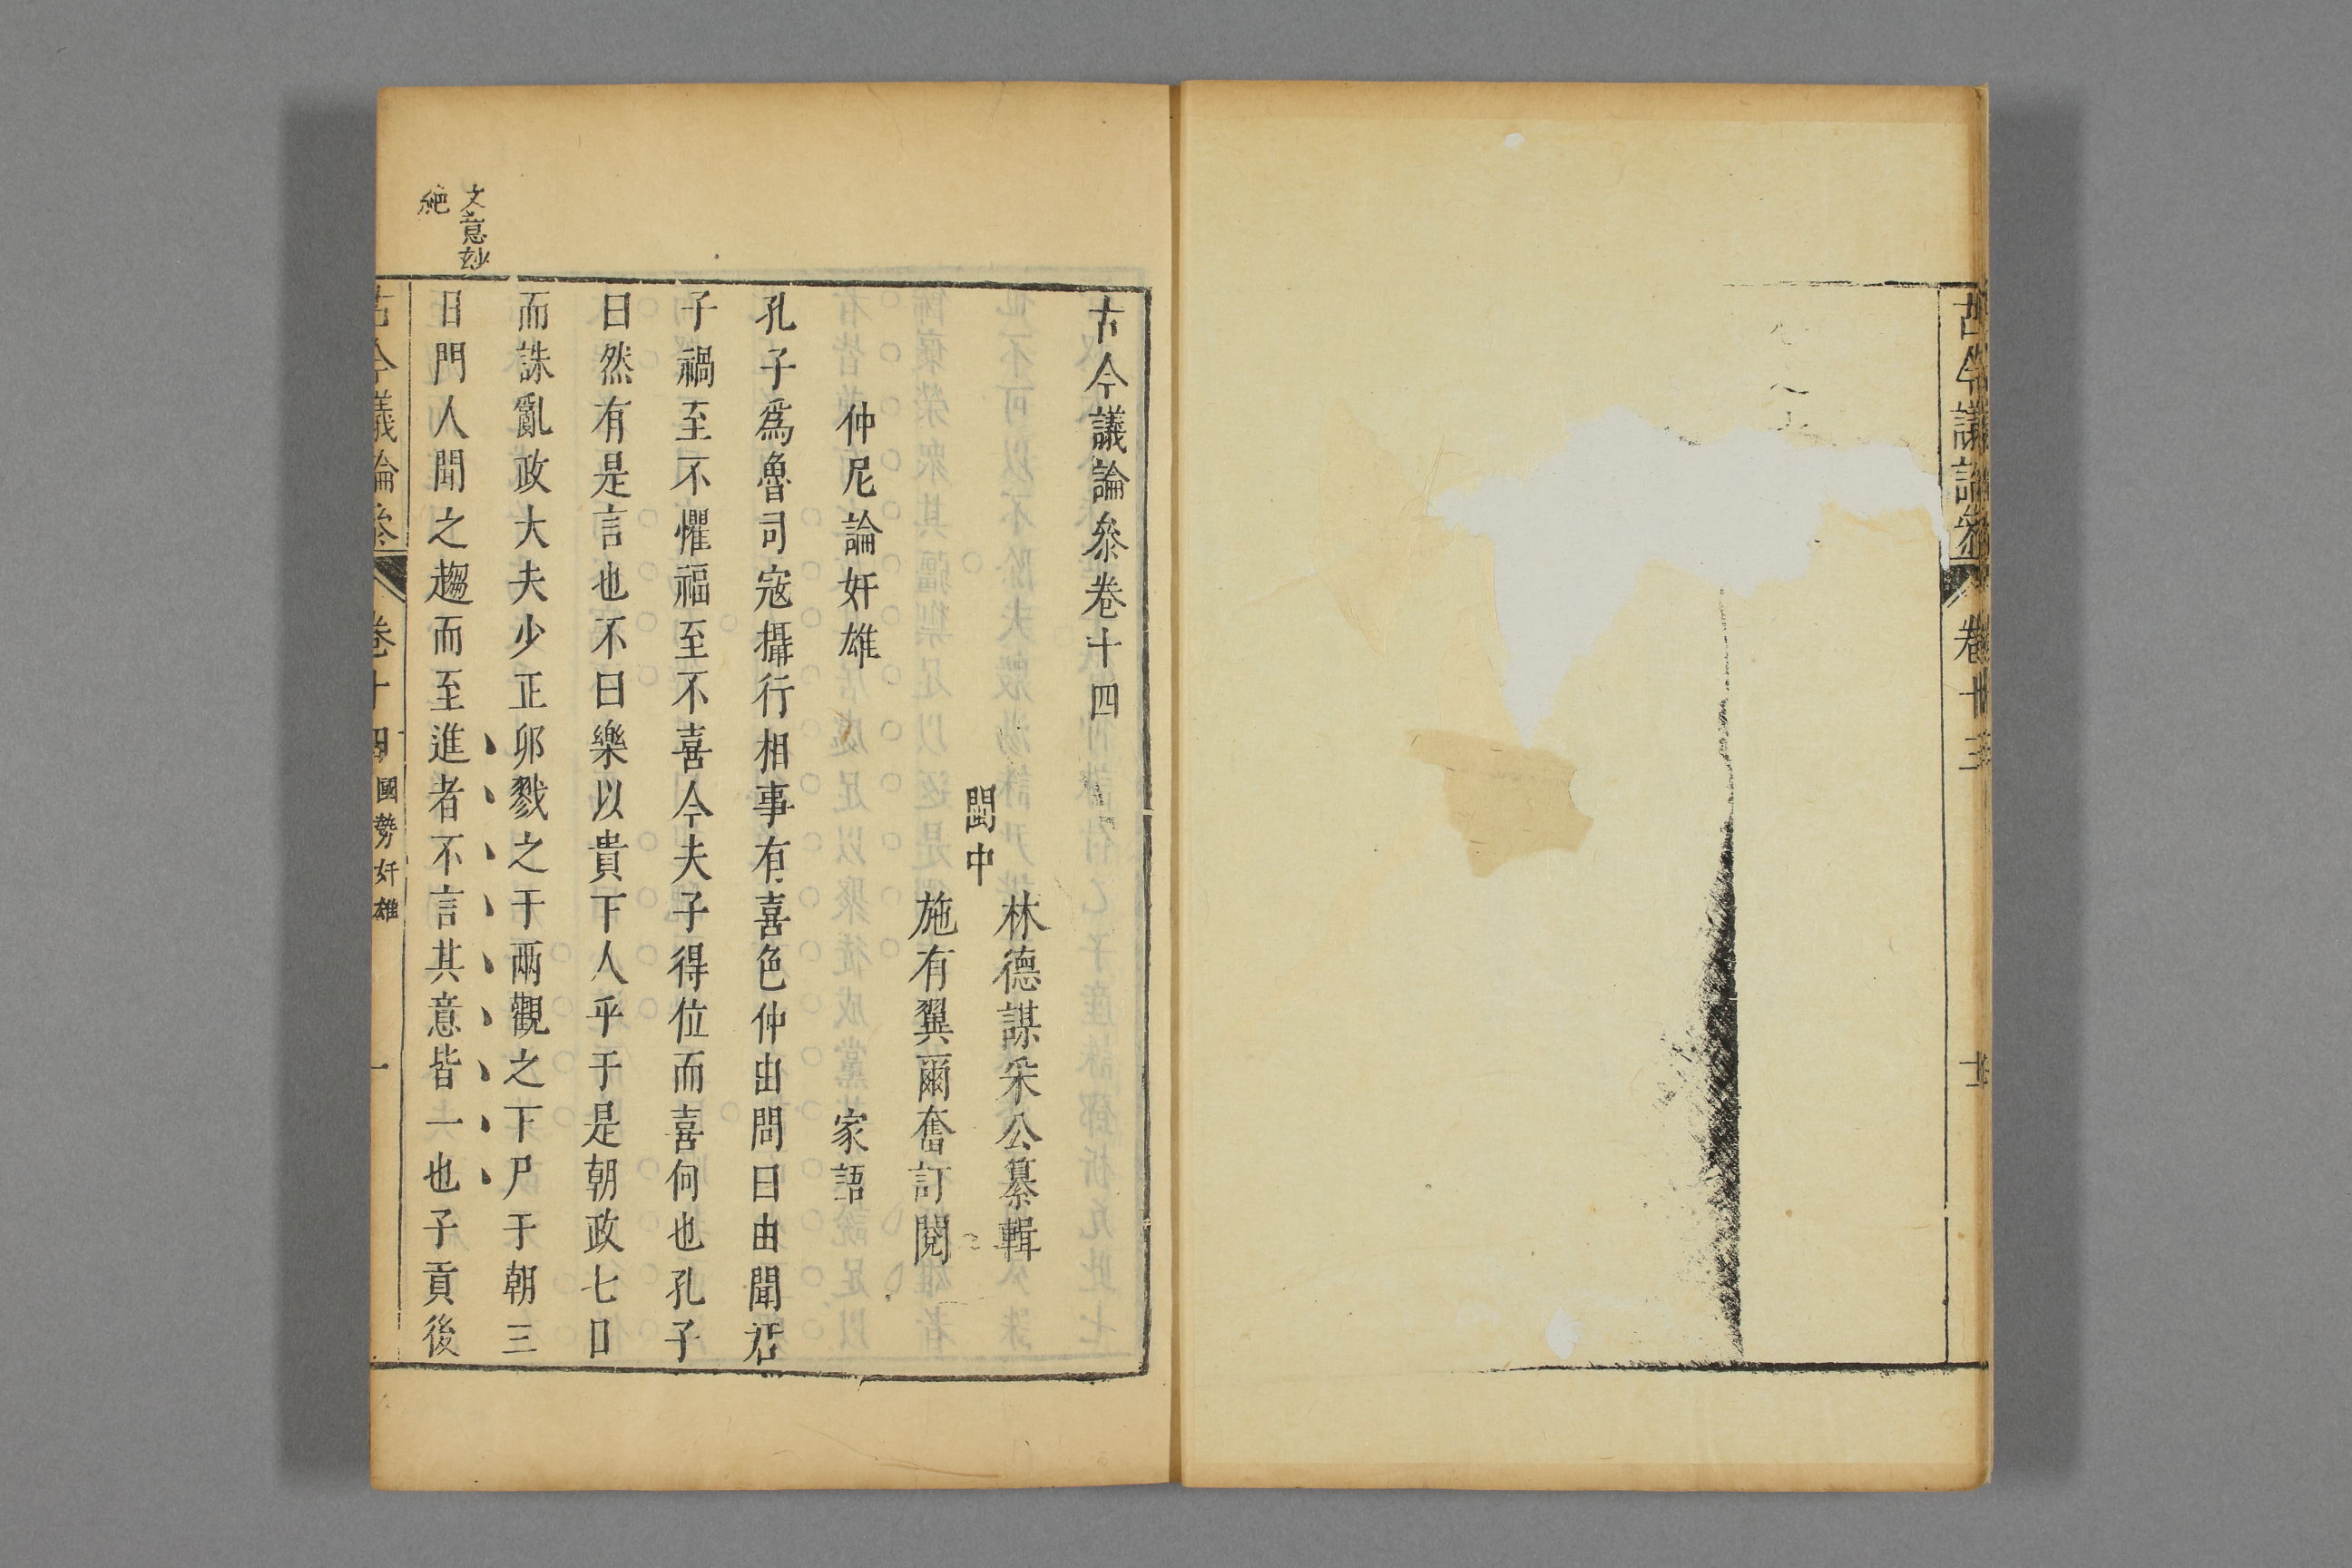 古今議論叅
卷十三
古今議論叅卷十四
林德謀采公纂輯
閩中
施有翼爾奮訂閱
仲尼論奸雄
家語
孔子爲魯司寇攝行相事有喜色仲由問曰由聞君
子禍至不懼福至不喜今夫子得位而喜何也孔子
曰然有是言也不曰樂以貴下人乎于是朝政七日
而誅亂政大夫少正卯戮之于兩觀之下尸于朝三
日門人聞之趨而至進者不言其意皆一也子貢後
文意玅
絶
古今議論叅
卷十四
國勢奸雄
一